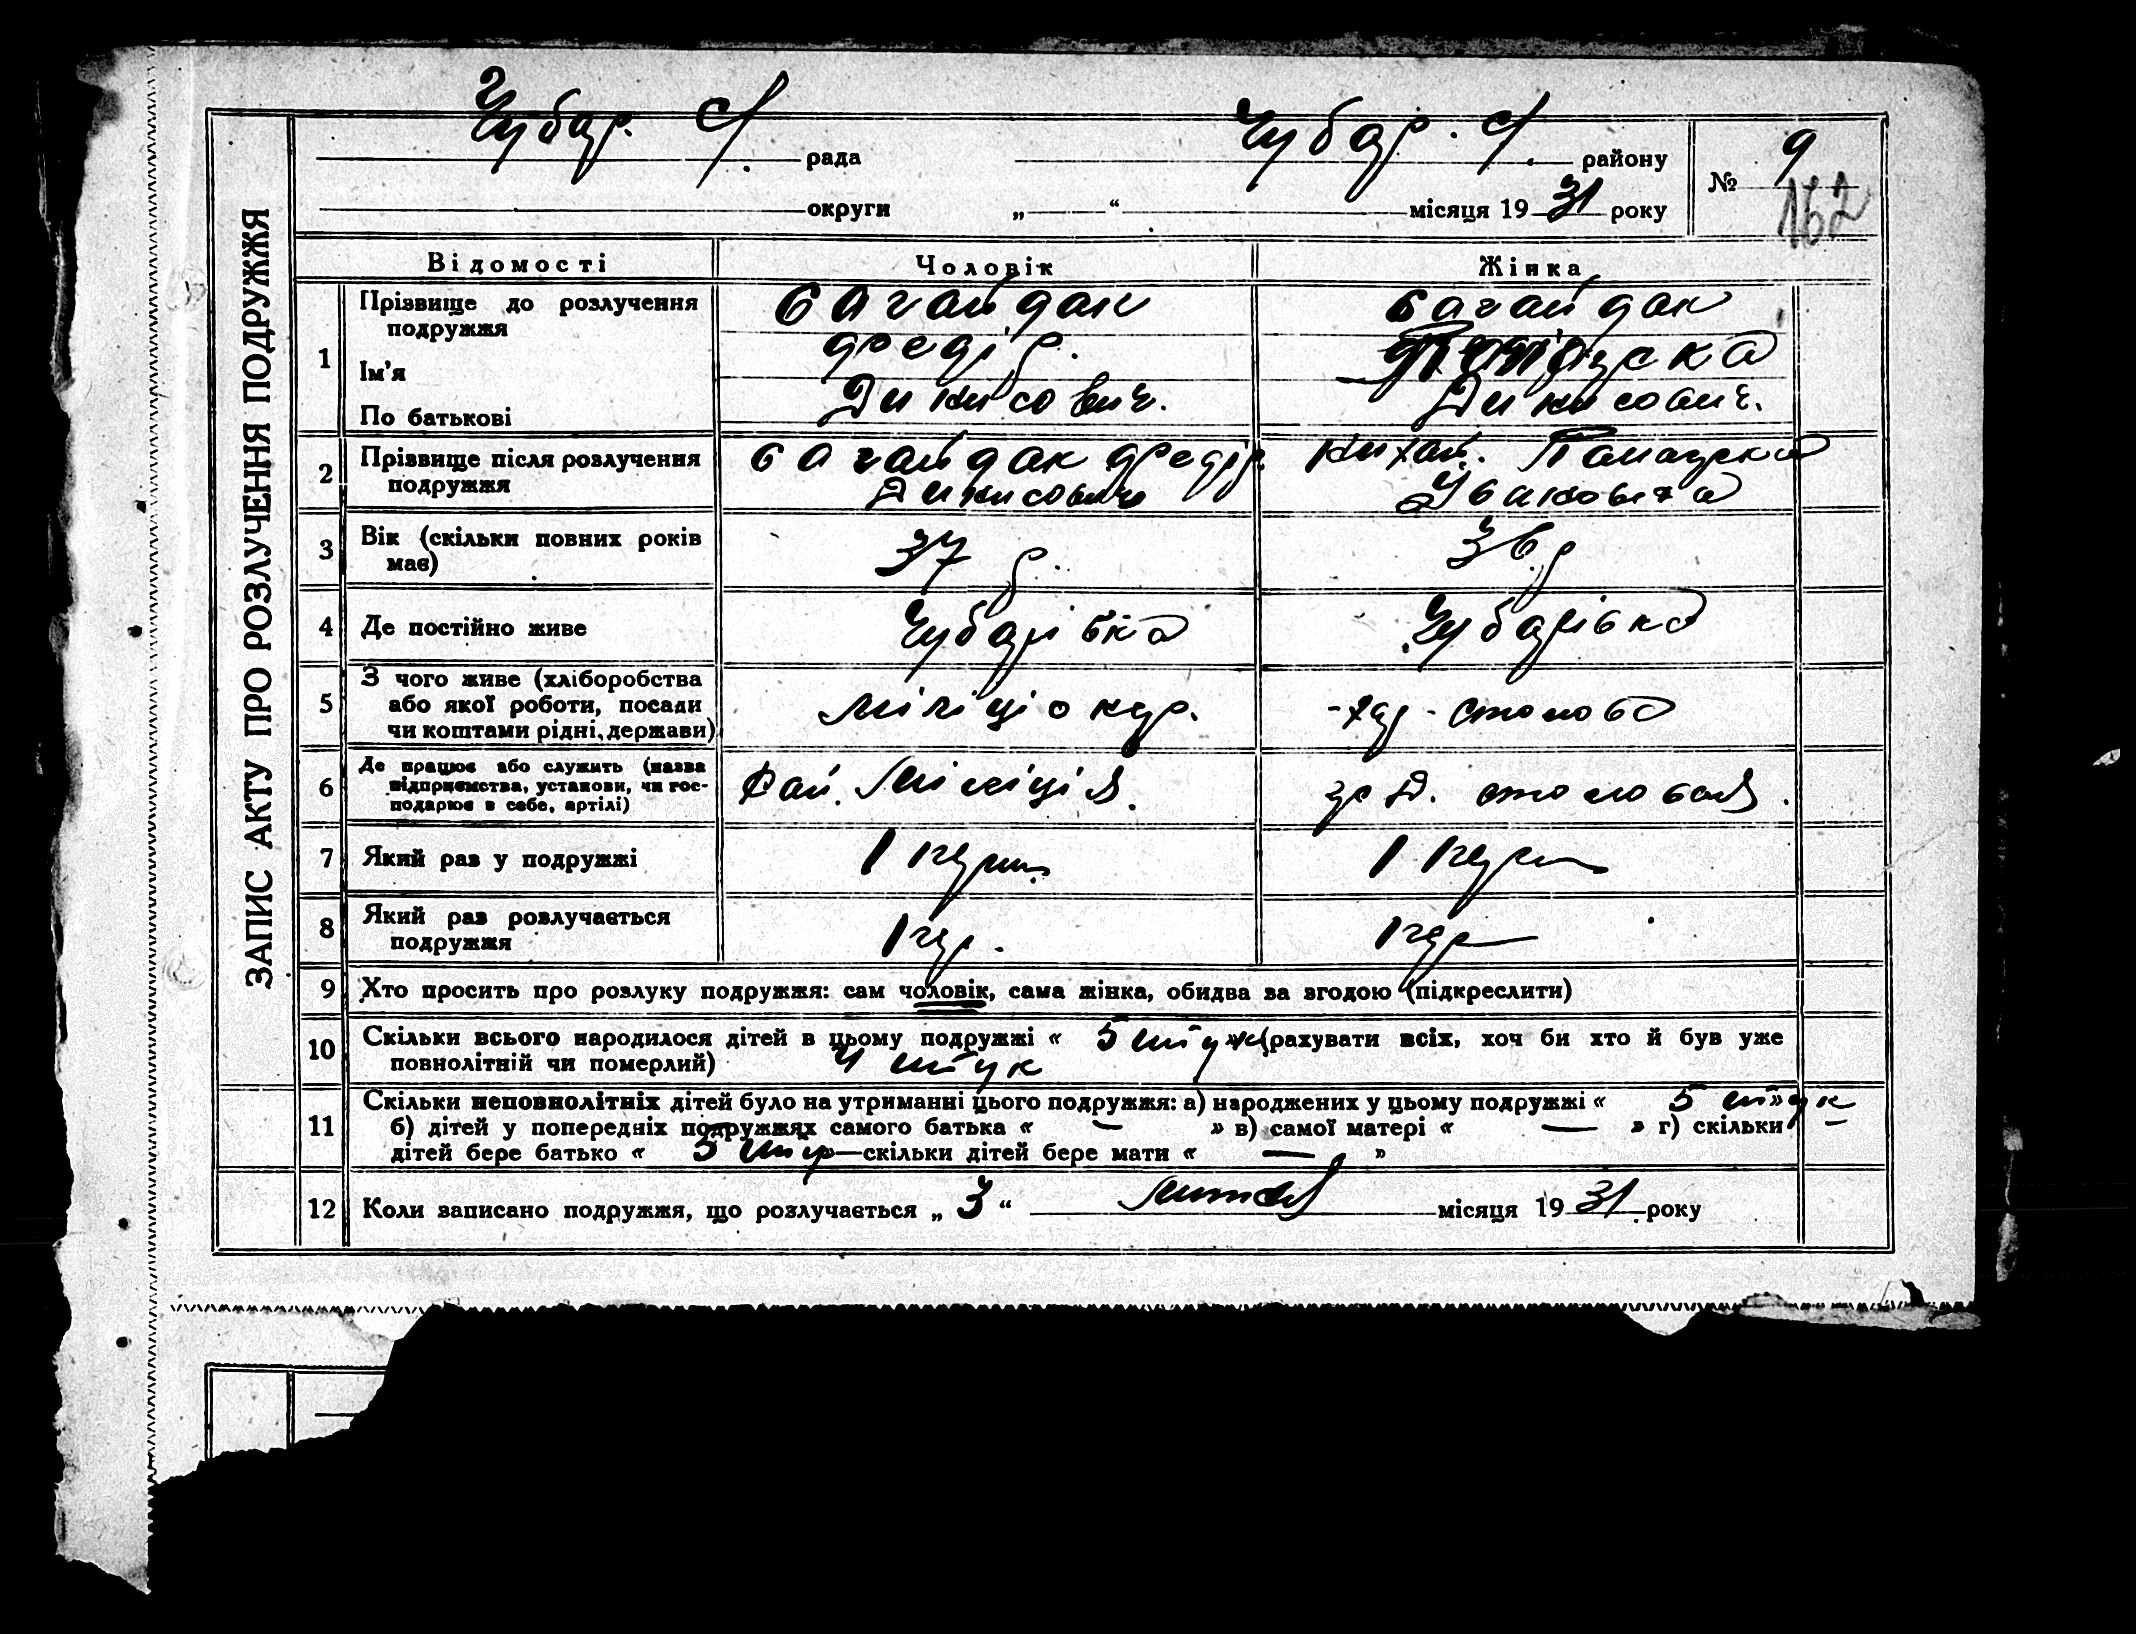 ЗАПИС АКТУ ПРО РОЗЛУЧЕННЯ ПОДРУЖЖЯ
Чубар. с/. рада Чубар. с/. району № 9
162
округи „ “ місяця 1931 року
Відомості Чоловік Жінка
1 Прізвище до розлучення подружжя Багайдак Багайдак
Ім'я Федір.
По батькові Дикисович. Дикисович.
2 Прізвище після розлучення Багайдак Федір.
подружжя Дикисович Ивановна
3 Вік (скільки повних років має) 37 р. 36 р
4 Де постійно живе Чубарівка Чубарівка
5 З чого живе (хліборобства
або якої роботи, посади міліціонер. столова
чи коштами рідні, держави)
6 Де працює або служить (назва
підприємства, установи, чи гос- Рай. Міліція. столовая.
подарює в себе, артілі)
7 Який раз у подружжі 1 1
8 Який раз розлучається
подружжя 1 1
9 Хто просить про розлуку подружжя: сам чоловік, сама жінка, обидва за згодою (підкреслити)
10 Скільки всього народилося дітей в цьому подружжі « 5 штук (рахувати всіх, хоч би хто й був уже
повнолітній чи померлий) 4 штук
11 Скільки неповнолітніх дітей було на утриманні цього подружжя: а) народжених у цьому подружжі « 5 штук »
б) дітей у попередніх подружжях самого батька « — » в) самої матері « — » г) скільки —
дітей бере батько « 5 штук — скільки дітей бере мати « — »
12 Коли записано подружжя, що розлучається „ 3 “ місяця 1931 року